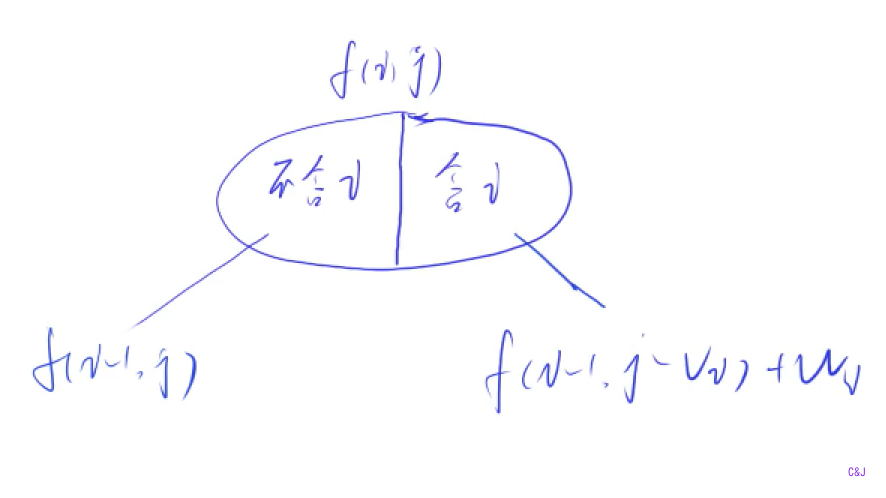 f(i, j)
不含i
含i
f(i-1, j)
f(i-1, j-Vi) + Wi
C&J